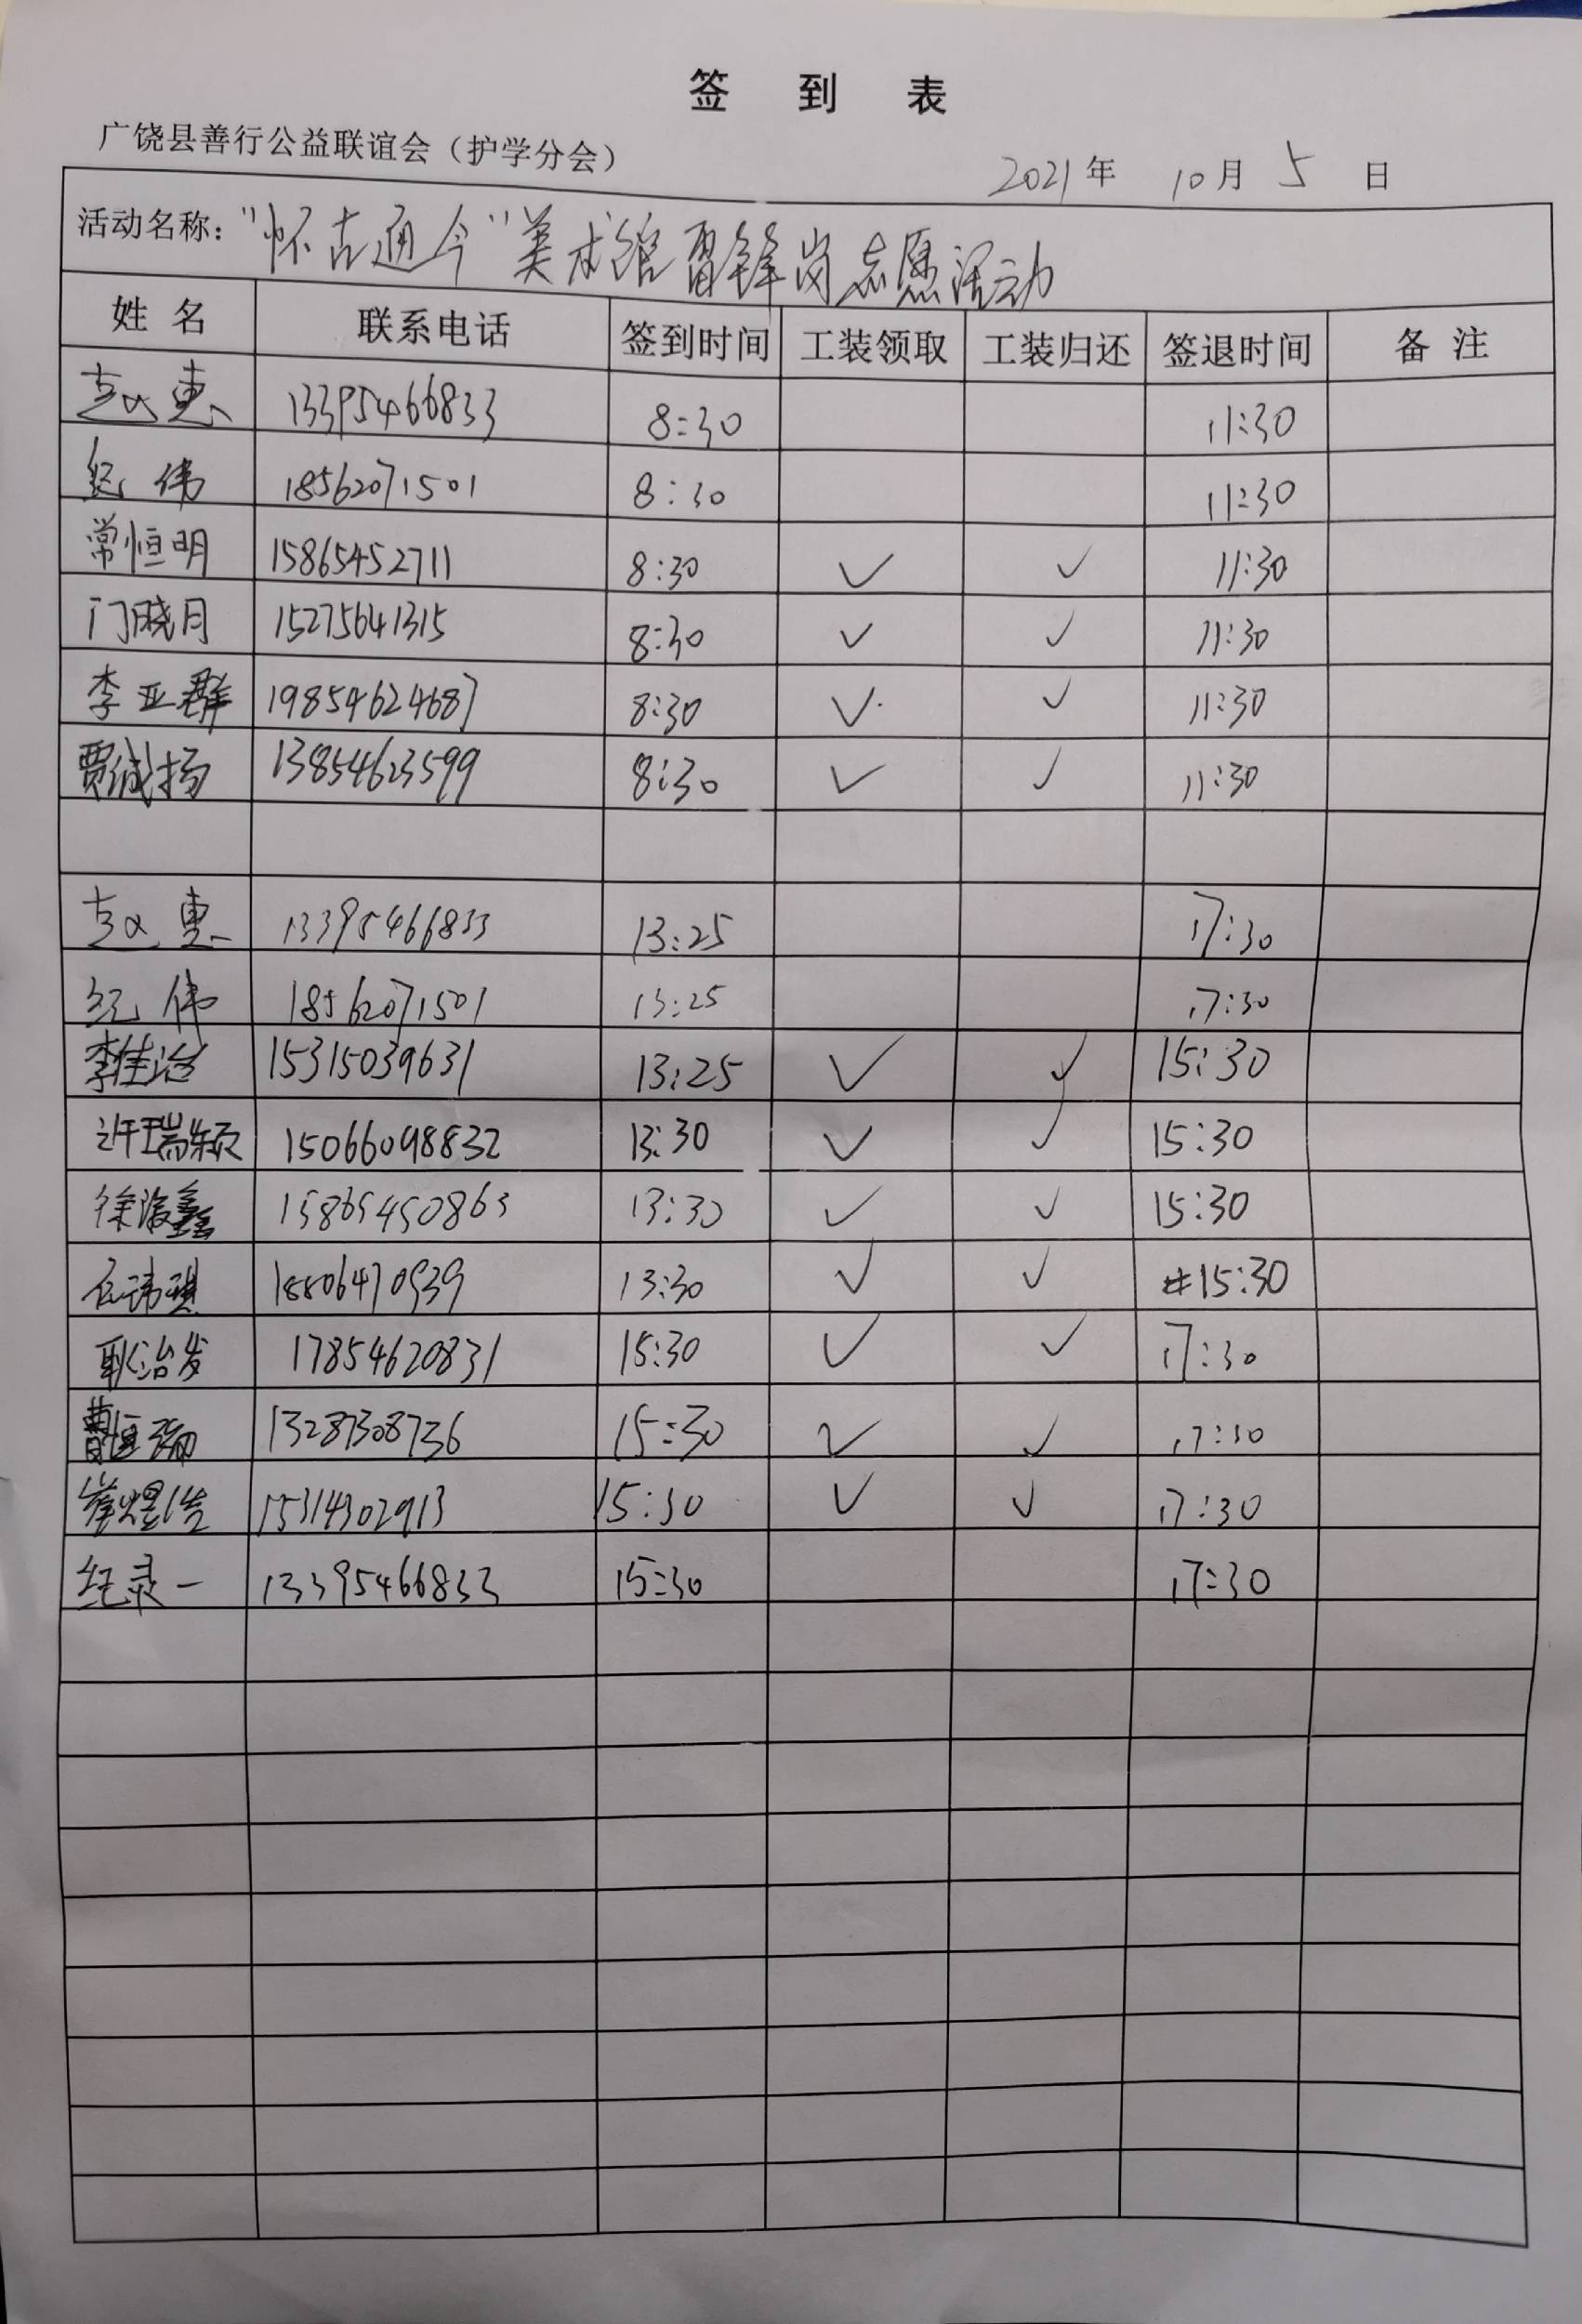 签 到 表
广饶县善行公益联谊会（护学分会）
2021年 10月 5 日
活动名称："怀古通今"美术馆雷锋岗志愿活动
姓 名 联系电话 签到时间 工装领取 工装归还 签退时间 备 注
赵惠 13395466833 8:30 11:30
纪伟 18562071501 8:30 11:30
常恒明 15865452711 8:30 ✓ ✓ 11:30
门晓月 15275641315 8:30 ✓ ✓ 11:30
李亚群 19854624687 8:30 ✓ ✓ 11:30
贾诚扬 13854623599 8:30 ✓ ✓ 11:30
赵惠 13395466833 13:25 17:30
纪伟 18562071501 13:25 17:30
李佳冶 15315039631 13:25 ✓ ✓ 15:30
许瑞颖 15066098832 13:30 ✓ ✓ 15:30
徐 鑫 15865450863 13:30 ✓ ✓ 15:30
石玮琪 18806470939 13:30 ✓ ✓ 15:30
耿治发 17854620831 15:30 ✓ ✓ 17:30
曹恒瑞 13287308736 15:30 ✓ ✓ 17:30
崔煜 15314302913 15:30 ✓ ✓ 17:30
纪录一 13395466833 15:30 17:30